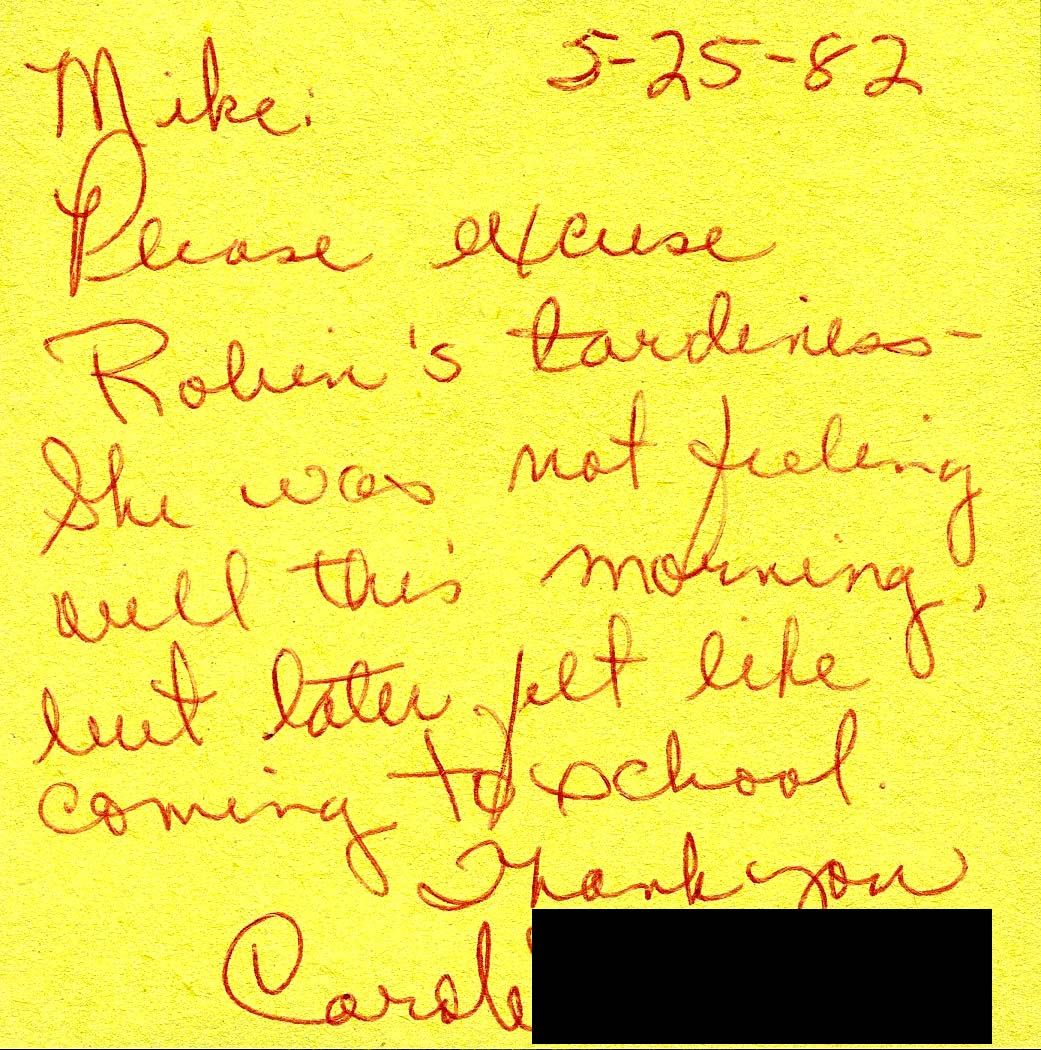 5-25-82
Mike:
Please excuse
Robin's tardiness-
She was not feeling
well this morning,
but later felt like
coming to school.
Thank you
Carole